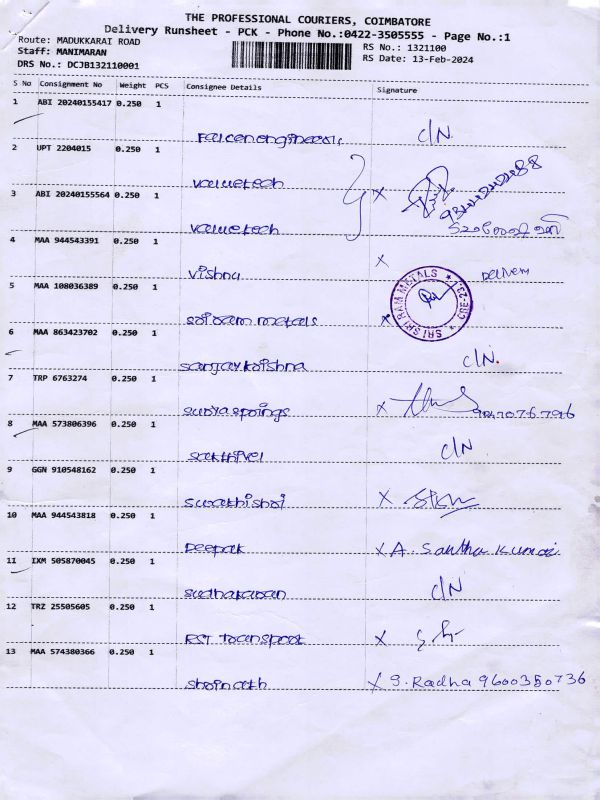 THE PROFESSIONAL COURIERS, COIMBATORE
Delivery Runsheet - PCK - Phone No.:0422-3505555 - Page No.:1
Route: MADUKKARAI ROAD
RS No.: 1321100
Staff: MANIMARAN
RS Date: 13-Feb-2024
DRS No.: DCJB132110001
S No Consignment No Weight PCS Consignee Details Signature
1 ABI 20240155417 0.250 1
Falconengineers C/N
2 UPT 2204015 0.250 1
Valuetech
3 ABI 20240155564 0.250 1 X
Valuetech
4 MAA 944543391 0.250 1 X
Vishnu Delivery
5 MAA 108036389 0.250 1
SRI SRI RAM METALS * CBE-23. *
Sriram metals X
6 MAA 863423702 0.250 1
Sanjaykrishna C/N.
7 TRP 6763274 0.250 1
Suryasprings X
8 MAA 573806396 0.250 1
Sakthivel C/N
9 GGN 910548162 0.250 1
Swathishri X
10 MAA 944543818 0.250 1
Deepak X A. Santha Kumar
11 IXM 505870045 0.250 1
Sudhakaran C/N
12 TRZ 25505605 0.250 1
KST Transport X
13 MAA 574380366 0.250 1
Shrinath X S. Radha 9600350736